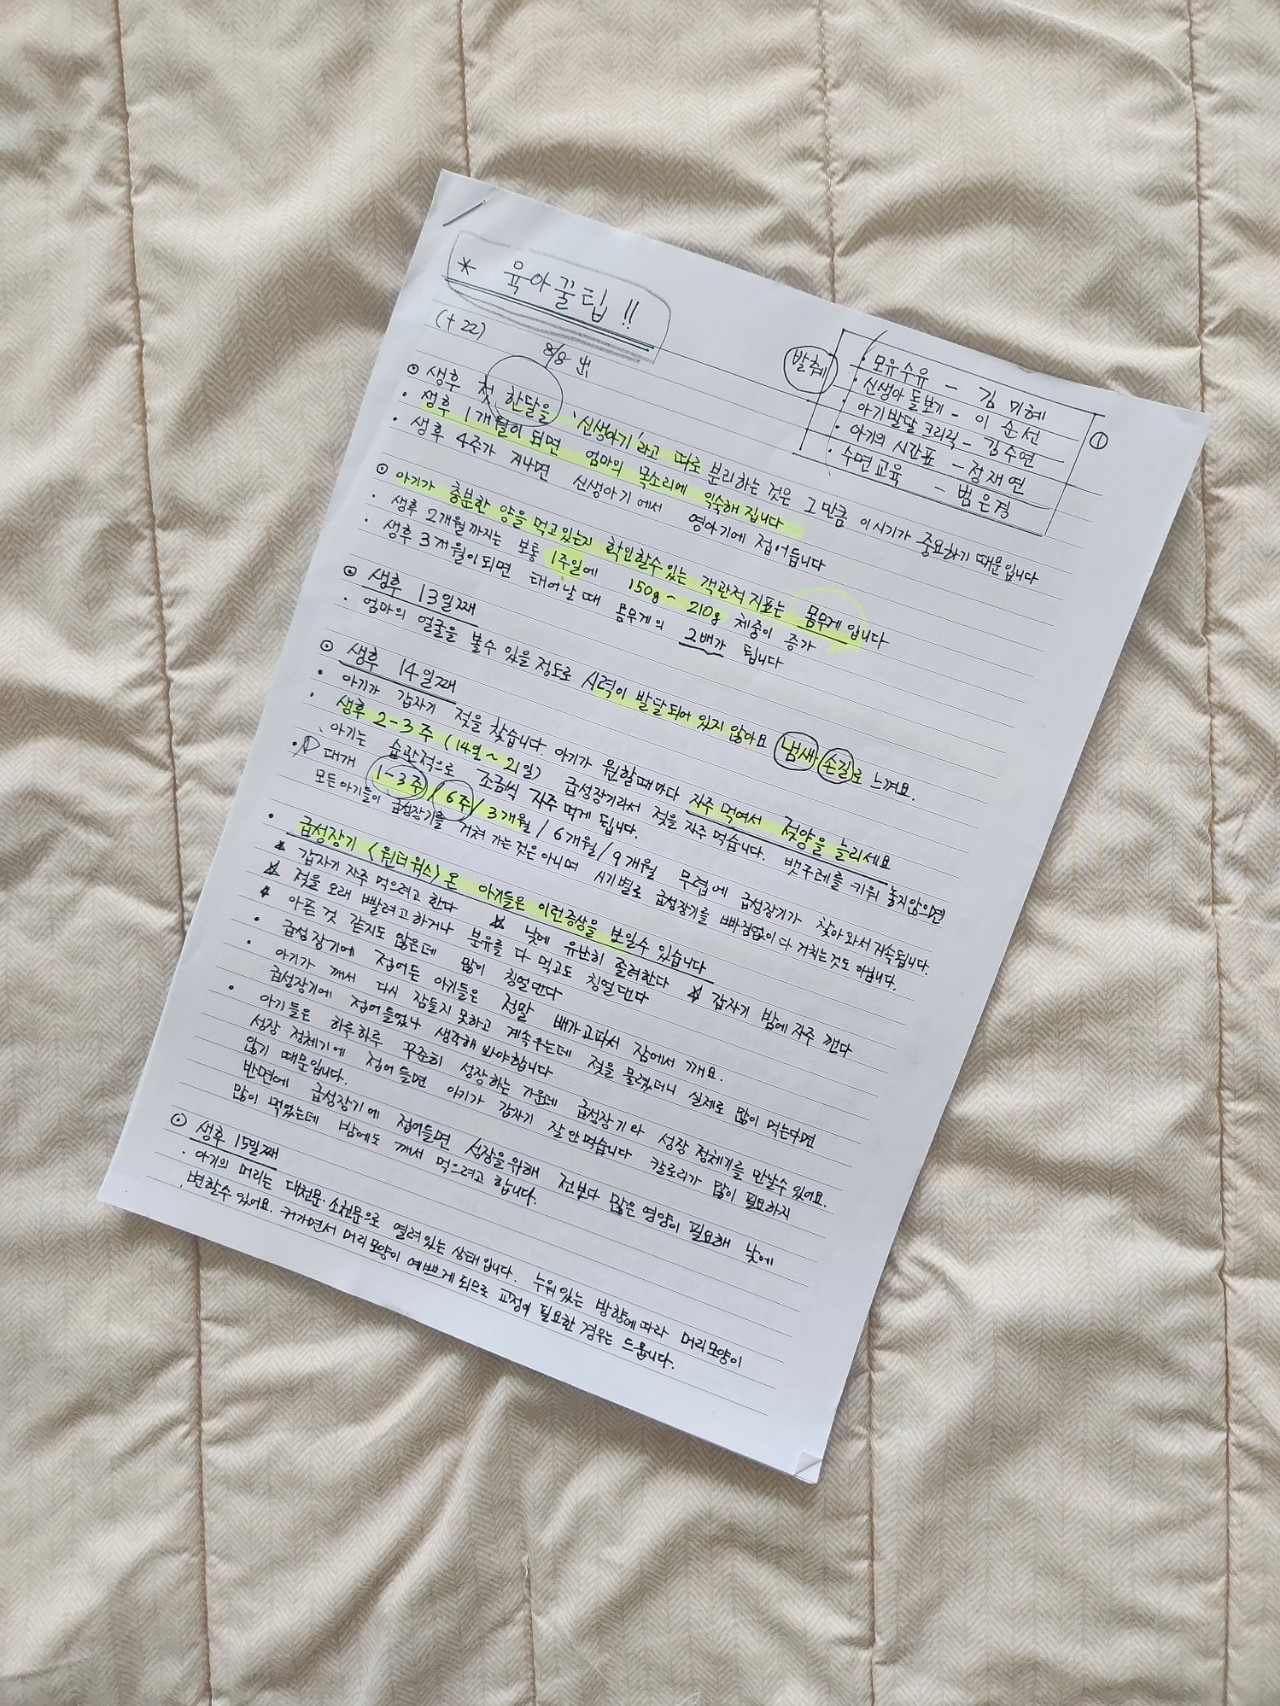 * 육아꿀팁!!
(+22)
8/8 出
발췌
· 모유수유 - 김 미혜
· 신생아 돌보기 - 이 순선
· 아기발달 크리닉 - 김수연
· 아가의 시간표 - 정재연
· 수면교육 - 범은경
①
⊙ 생후 첫 한달을 '신생아기'라고 따로 분리하는 것은 그만큼 이시기가 중요하기 때문입니다
· 생후 1개월이 되면 엄마의 목소리에 익숙해집니다
· 생후 4주가 지나면 신생아기에서 영아기에 접어듭니다
⊙ 아기가 충분한 양을 먹고있는지 확인할수있는 객관적 지표는 몸무게 입니다
· 생후 2개월까지는 보통 1주일에 150g ~ 210g 체중이 증가
· 생후 3개월이되면 태어날 때 몸무게의 2배가 됩니다
⊙ 생후 13일째
· 엄마의 얼굴을 볼수 있을 정도로 시력이 발달되어 있지 않아요 냄새/손길로 느껴요.
⊙ 생후 14일째
· 아기가 갑자기 젖을 찾습니다. 아기가 원할때마다 자주 먹여서 젖양을 늘리세요
· 생후 2-3주 (14일~21일) 급성장기라서 젖을 자주 먹습니다. 뱃구레를 키워 놓지않으면
아기는 습관적으로 조금씩 자주 먹게 됩니다.
· 대개 1-3주/6주/3개월/6개월/9개월 무렵에 급성장기가 찾아와서 지속됩니다.
모든아기들이 급성장기를 거쳐 가는 것은 아니며 시기별로 급성장기를 빠짐없이 다 거치는것도 아닙니다.
· 급성장기 <원더윅스>온 아기들은 이런증상을 보일수 있습니다
☆ 갑자기 자주 먹으려고 한다 ☆ 낮에 유난히 졸려한다 ☆ 갑자기 밤에 자주 깬다
☆ 젖을 오래 빨려고하거나 분유를 다 먹고도 칭얼댄다
☆ 아픈 것 같지도 않은데 많이 칭얼댄다
· 급성장기에 접어든 아기들은 정말 배가고파서 잠에서 깨요.
· 아기가 깨서 다시 잠들지 못하고 계속우는데 젖을 물렸더니 실제로 많이 먹는다면
급성장기에 접어들었나 생각해 봐야합니다
· 아기들은 하루하루 꾸준히 성장하는 가운데 급성장기와 성장 정체기를 만날수 있어요.
성장 정체기에 접어들면 아기가 갑자기 잘안먹습니다 칼로리가 많이 필요하지
않기 때문입니다.
반면에 급성장기에 접어들면 성장을위해 전보다 많은 영양이 필요해 낮에
많이 먹었는데 밤에도 깨서 먹으려고 합니다.
⊙ 생후 15일째
· 아기의 머리는 대천문·소천문으로 열려있는 상태입니다. 누워있는 방향에따라 머리모양이
변할수 있어요. 커가면서 머리모양이 예쁘게 되므로 교정이 필요한 경우는 드뭅니다.